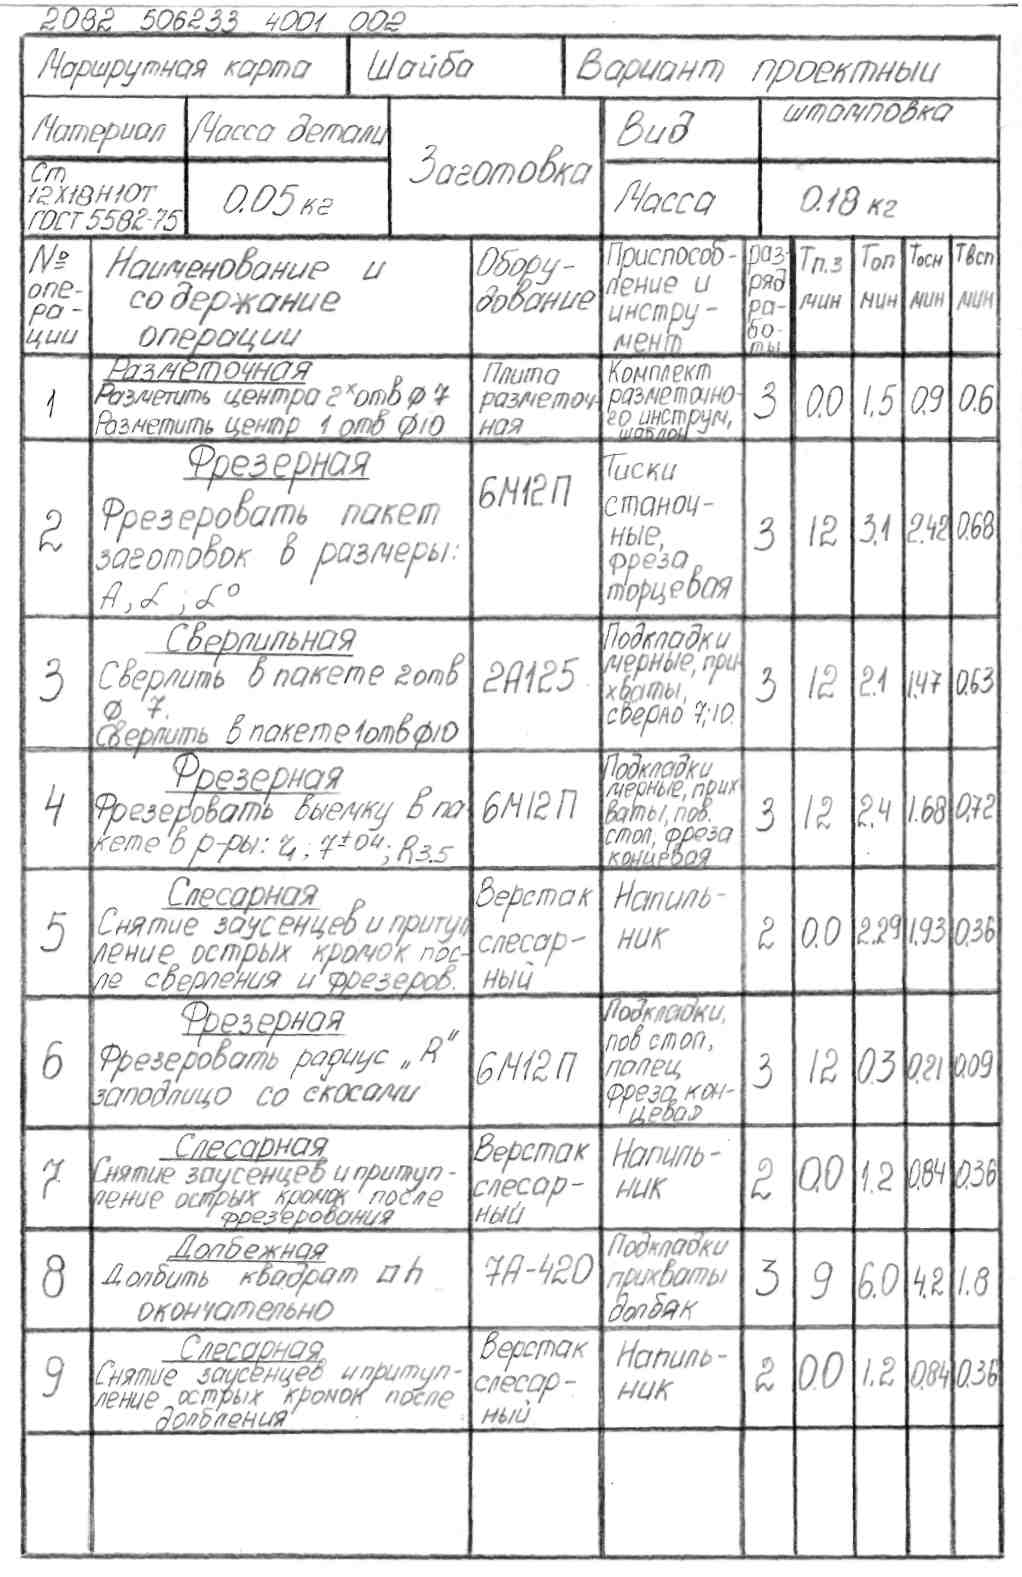 2082 506233 4001 002
Маршрутная карта
Шайба
Вариант проектный
Материал
Масса детали
Заготовка
Вид
штамповка
Ст
12Х18Н10Т
ГОСТ 5582-75
0.05 кг
Масса
0.18 кг
№
опе-
ра-
ции
Наименование и
содержание
операции
Обору-
дование
Приспособ-
ление и
инстру-
мент
раз-
ряд
ра-
бо-
ты
Тп.з
мин
Топ
мин
Тосн
мин
Твсп
мин
1
Разметочная
Разметить центра 2х отв ф 7
Разметить центр 1 отв ф10
Плита
разметоч-
ная
Комплект
разметочно-
го инструм,
шаблон
3
0.0
1.5
0.9
0.6
2
Фрезерная
Фрезеровать пакет
заготовок в размеры:
А, L ; L°
6М12П
Тиски
станоч-
ные,
фреза
торцевая
3
12
3.1
2.42
0.68
3
Сверлильная
Сверлить в пакете 2отв
ф 7.
Сверлить в пакете 1отв ф10
2А125
Подкладки
мерные, при-
хваты,
сверло 7;10.
3
12
2.1
1.47
0.63
4
Фрезерная
Фрезеровать выемку в па-
кете в р-ры: ; 7±04; R3.5
6М12П
Подкладки
мерные, прих
ваты, пов.
стол, фреза
концевая
3
12
2.4
1.68
0.72
5
Слесарная
Снятие заусенцев и притуп
ление острых кромок пос-
ле сверления и фрезеров.
Верстак
слесар-
ный
Напиль-
ник
2
0.0
2.29
1.93
0.36
6
Фрезерная
Фрезеровать радиус „R"
заподлицо со скосами
6М12П
Подкладки,
пов стол,
палец
фреза кон-
цевая
3
12
0.3
0.21
0.09
7
Слесарная
Снятие заусенцев и притуп-
ление острых кромок после
фрезерования
Верстак
слесар-
ный
Напиль-
ник
2
0.0
1.2
0.84
0.36
8
Долбежная
Долбить квадрат □ h
окончательно
7А-420
Подкладки
прихваты
долбяк
3
9
6.0
4.2
1.8
9
Слесарная
Снятие заусенцев и притуп-
ление острых кромок после
долбления
Верстак
слесар-
ный
Напиль-
ник
2
0.0
1.2
0.84
0.36